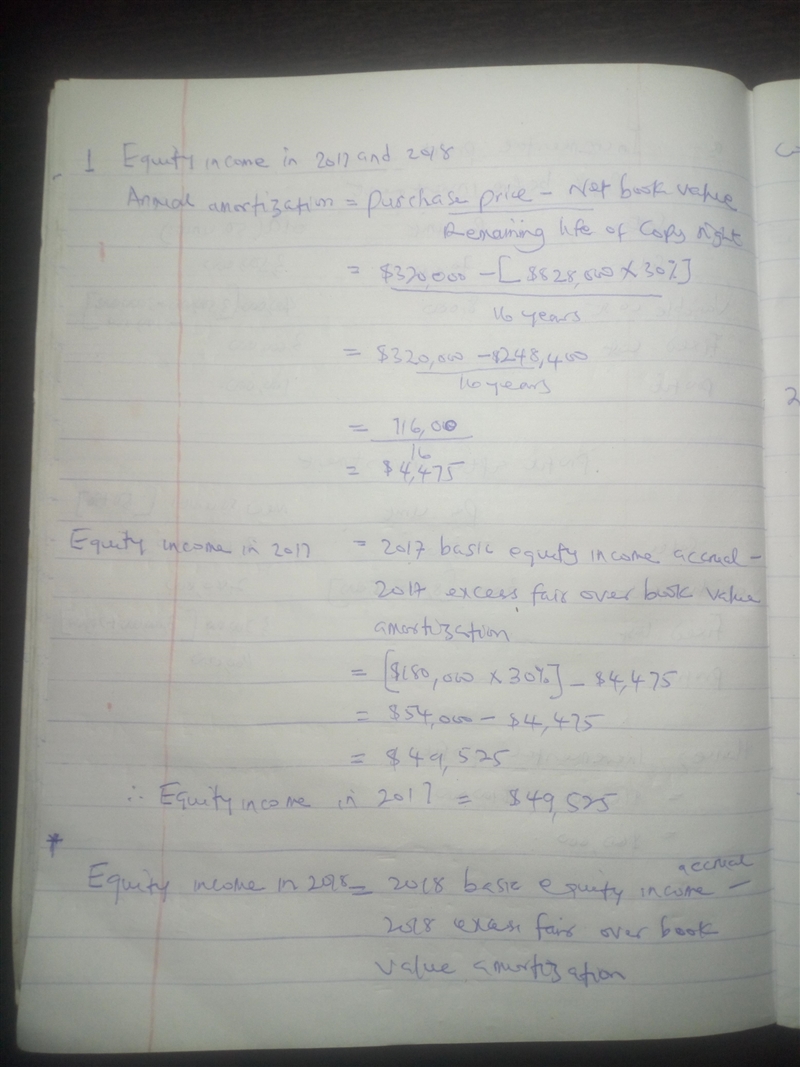 1 Equity income in 2017 and 2018
Annual amortization = Purchase price - Net book value
Remaining life of Copy right
= $320,000 - [$828,000 x 30%]
16 years
= $320,000 - $248,400
16 years
= 716,00
16
= $4,475
Equity income in 2017 = 2017 basic equity income accrual -
2017 excess fair over book value
amortization
= [$180,000 x 30%] - $4,475
= $54,000 - $4,475
= $49,525
∴ Equity income in 2017 = $49,525
*
accrual
Equity income in 2018 = 2018 basic equity income -
2018 excess fair over book
value amortization
2